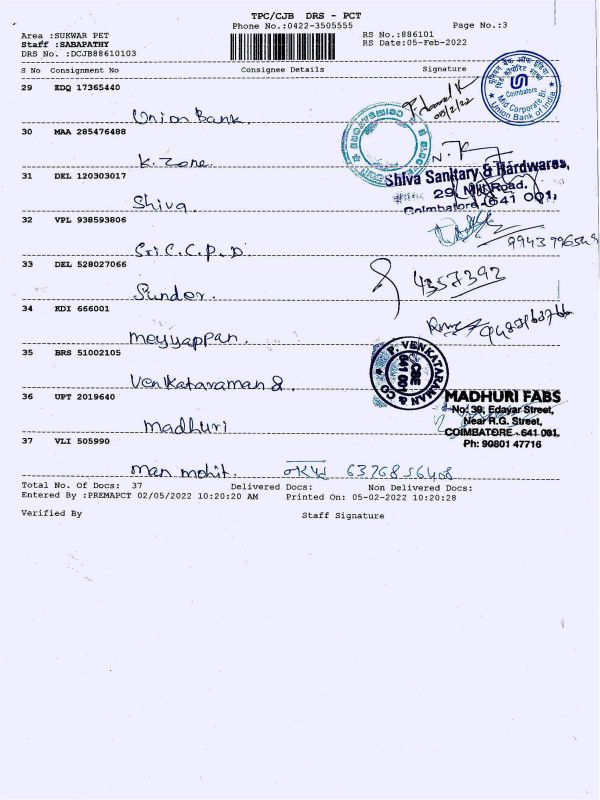 TPC/CJB DRS - PCT
Phone No.:0422-3505555 Page No.:3
Area :SUKWAR PET RS No.:886101
Staff :SABAPATHY RS Date:05-Feb-2022
DRS No. :DCJB88610103
S No Consignment No Consignee Details Signature
29 EDQ 17365440
Union Bank.
05/2/22
Coimbatore
Mid Corporate Br.
Union Bank of India
30 MAA 285476488
K. Zone.
31 DEL 120303017
Shiva
Shiva Sanitary & Hardwares,
29, Mill Road,
Coimbatore-641 001,
32 VPL 938593806
Sri C.C.P.D.
33 DEL 528027066
Sunder.
4357392
34 KDI 666001
Meyyappan.
35 BRS 51002105
Venkataraman &
P. VENKATARAMAN & CO
CBE
641 001
36 UPT 2019640
Madhuri
MADHURI FABS
No: 39, Edayar Street,
Near R.G. Street,
COIMBATORE - 641 001.
Ph: 90801 47716
37 VLI 505990
Man mohit. 6376856408
Total No. Of Docs: 37 Delivered Docs: Non Delivered Docs:
Entered By :PREMAPCT 02/05/2022 10:20:20 AM Printed On: 05-02-2022 10:20:28
Verified By Staff Signature